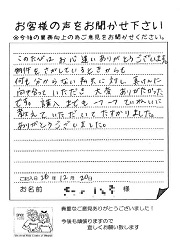 お客様の声をお聞かせ下さい
※今後の業務向上の為ご意見をお聞かせください。
このたびはお心遣いありがとうございます。
物件をさがしているときからも
何も分からない私共に対し真けんに
向き合っていただき、大変ありがたかった
です。購入までも一つ一つていねいに
教えていただいてたすかりました。
ありがとうございました。
ご記入日 26年12月20日
お名前 様
貴重なご意見ありがとうございました！
今後も頑張りますので
宜しくお願い致します